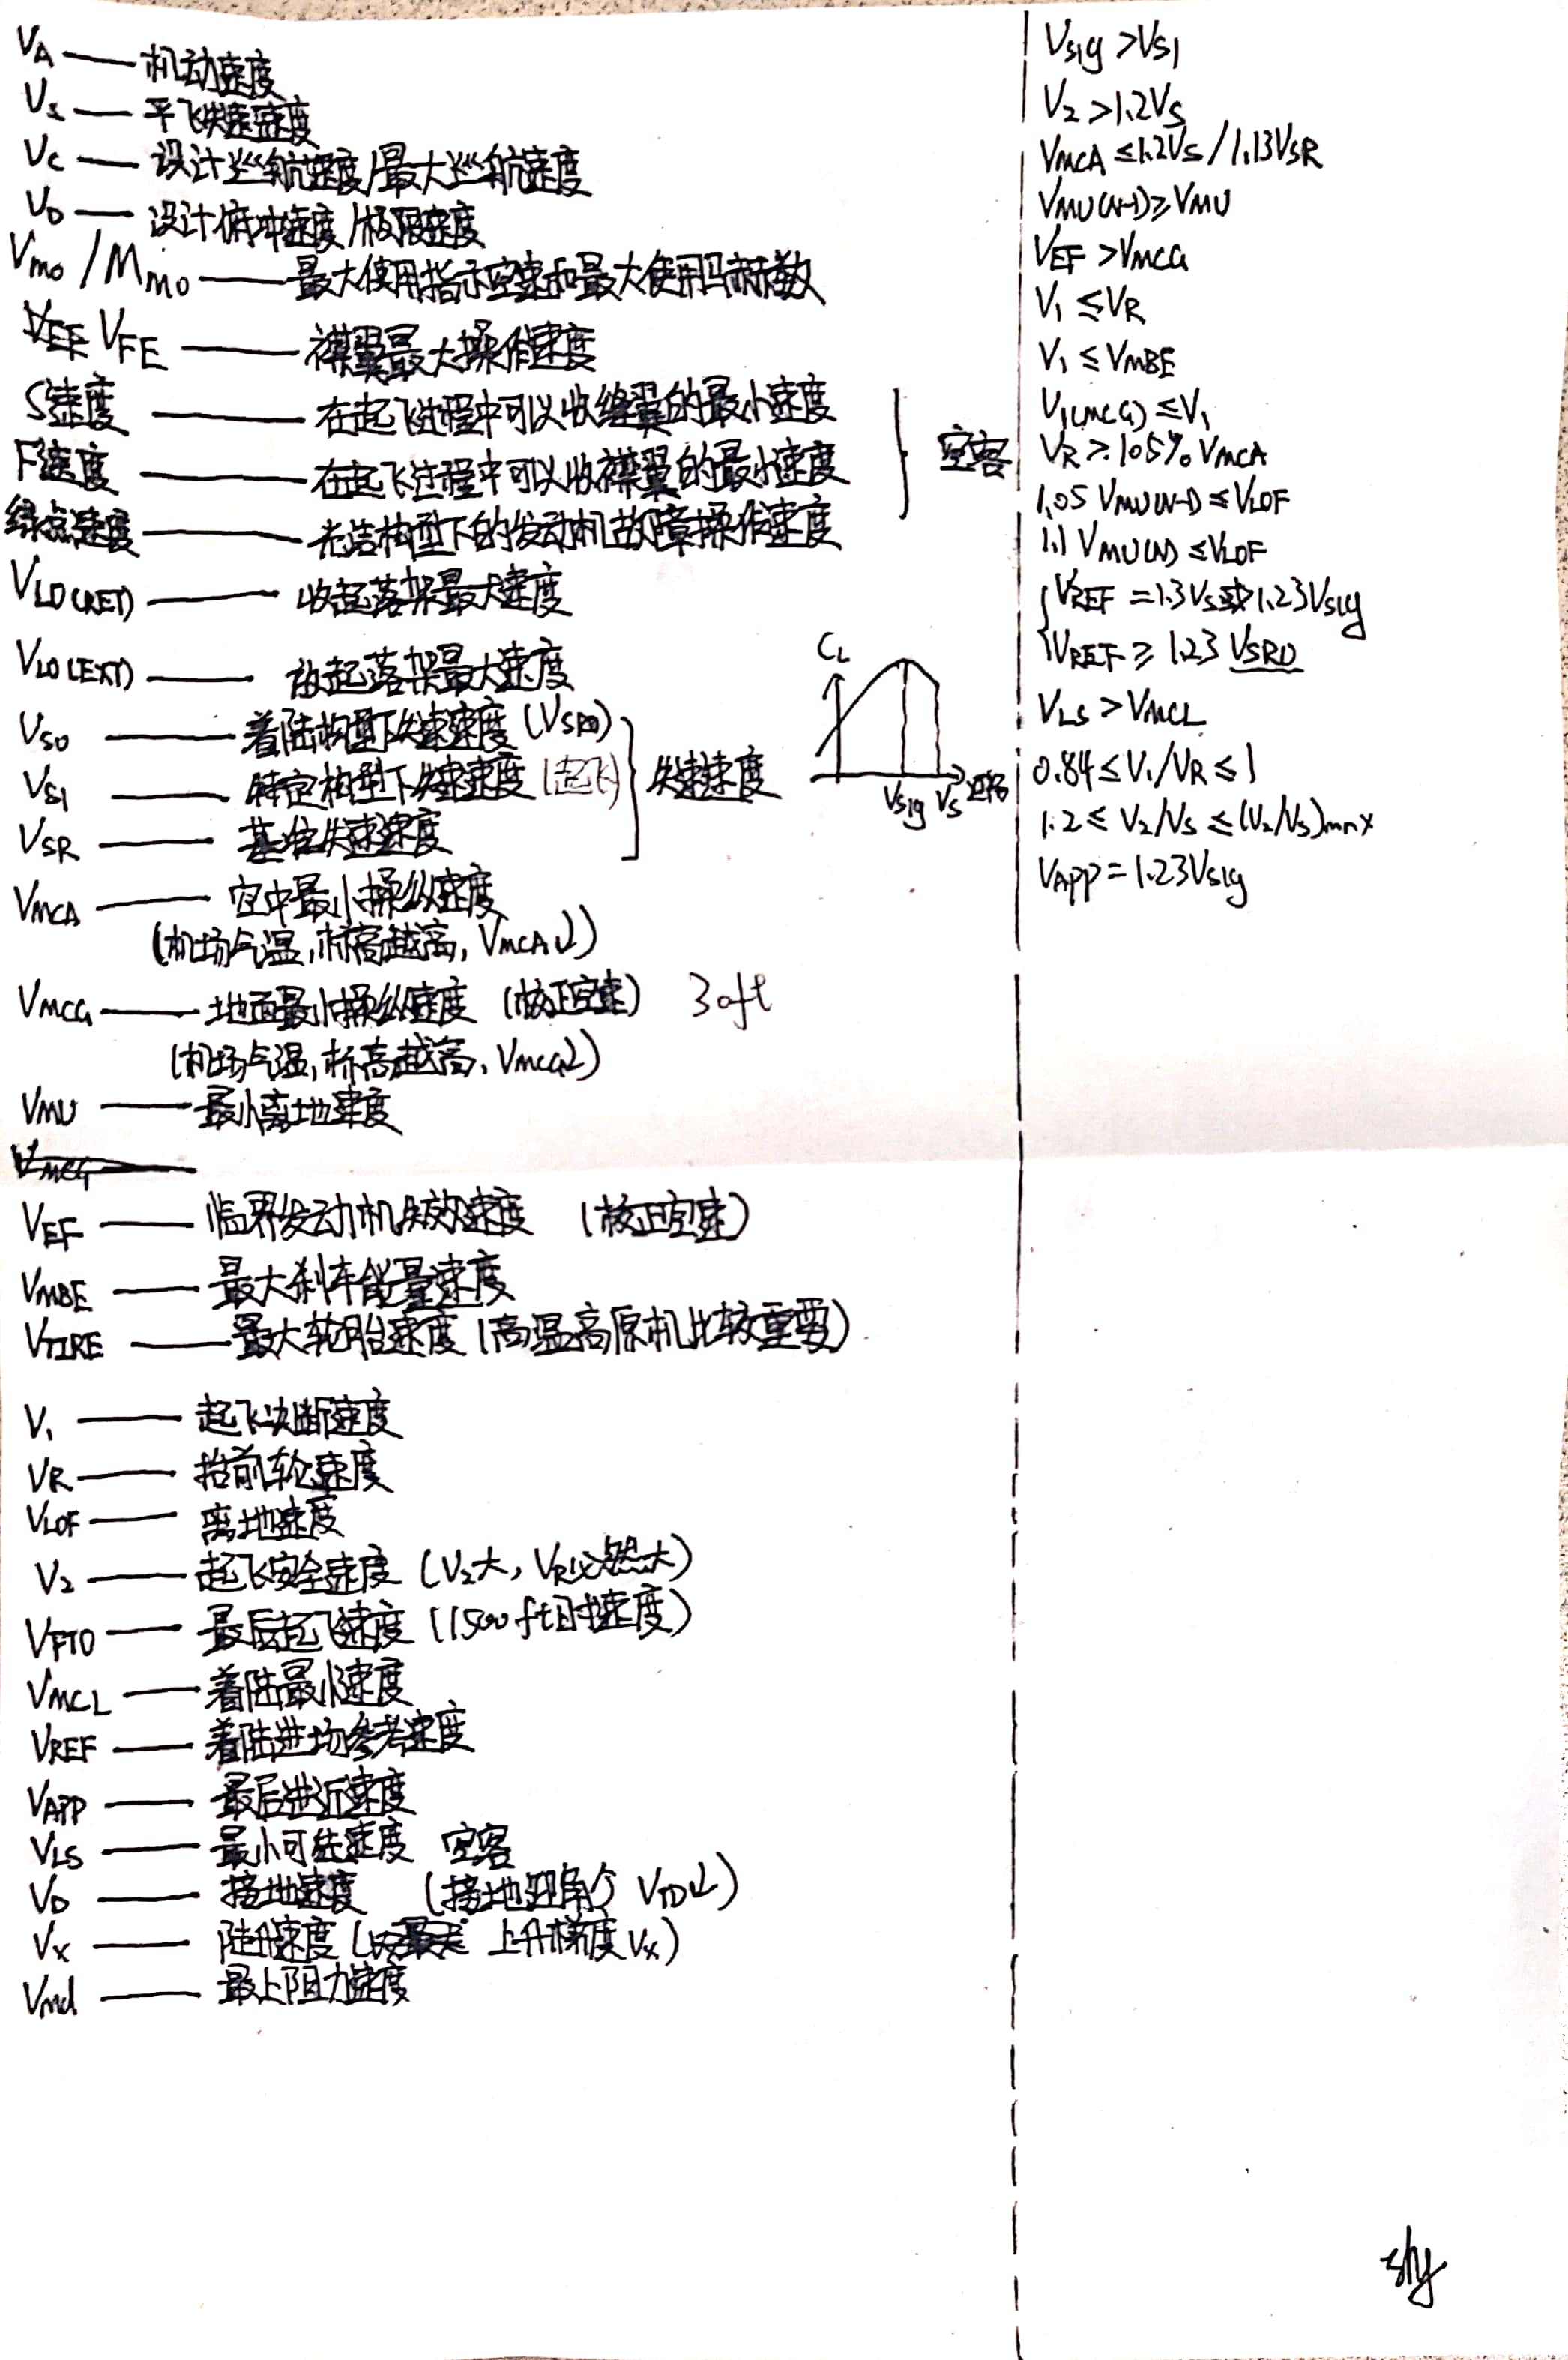 VA — 机动速度
Vs — 平飞失速速度
Vc — 设计巡航速度/最大巡航速度
VD — 设计俯冲速度/极限速度
Vmo/Mmo — 最大使用指示空速和最大使用马赫数
VFE — 襟翼最大操作速度
S速度 — 在起飞过程中可以收缝翼的最小速度
F速度 — 在起飞过程中可以收襟翼的最小速度
空客
绿点速度 — 光洁构型下的发动机故障操作速度
VLO(RET) — 收起落架最大速度
VLO(EXT) — 放起落架最大速度
VS0 — 着陆构型下失速速度(VSR0)
VS1 — 特定构型下失速速度(起飞)
失速速度
VSR — 基准失速速度
CL
VS1g VS 迎角
VMCA — 空中最小操纵速度
(机场气温,标高越高,VMCA↓)
VMCG — 地面最小操纵速度 (校正空速) 30ft
(机场气温,标高越高,VMCG↓)
VMU — 最小离地速度
VMCG
VEF — 临界发动机失效速度 (校正空速)
VMBE — 最大刹车能量速度
VTIRE — 最大轮胎速度(高温高原机比较重要)
V1 — 起飞决断速度
VR — 抬前轮速度
VLOF — 离地速度
V2 — 起飞安全速度 (V2大,VR必然大)
VFTO — 最后起飞速度 (1500ft时速度)
VMCL — 着陆最小速度
VREF — 着陆进场参考速度
VAPP — 最后进近速度
VLS — 最小可选速度 空客
VD — 接地速度 (接地迎角↑ VTD↓)
VX — 陡升速度 (上升梯度VX)
Vmd — 最小阻力速度
VS1g>VS1
V2>1.2VS
VMCA≤1.2VS/1.13VSR
VMU(N-1)≥VMU
VEF>VMCG
V1≤VR
V1≤VMBE
V1(MCG)≤V1
VR≥105%VMCA
1.05VMU(N-1)≤VLOF
1.1VMU(N)≤VLOF
VREF=1.3VS或1.23VS1g
VREF≥1.23VSR0
VLS>VMCL
0.84≤V1/VR≤1
1.2≤V2/VS≤(V2/VS)max
VAPP=1.23VS1g
shy